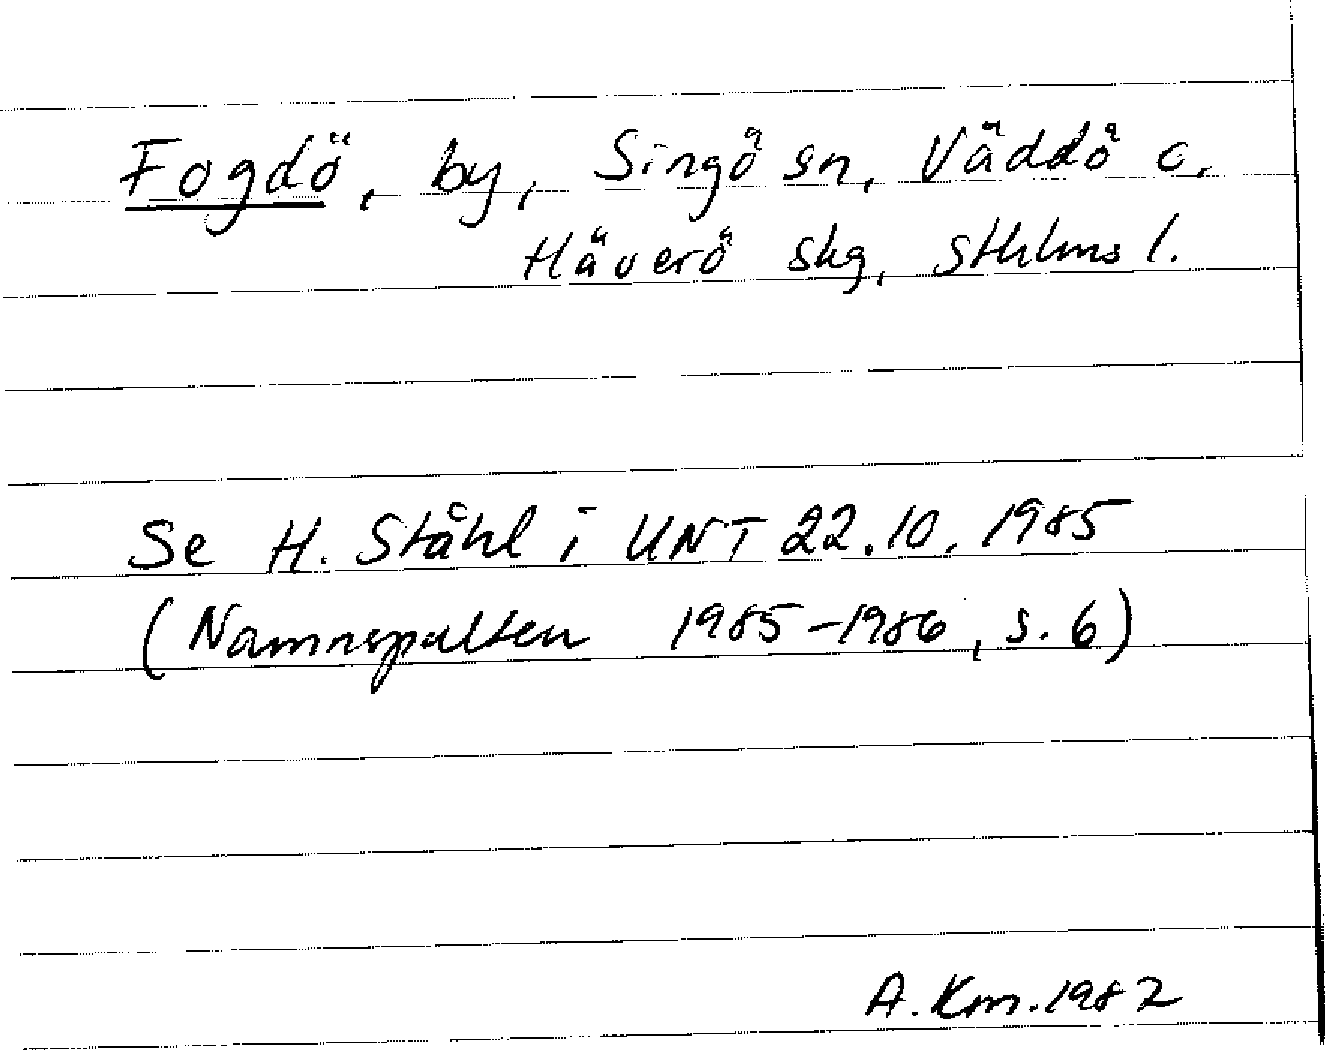 Fogdö, by, Singö sn, Väddö o.
Häverö skg, Sthlms l.
Se H. Ståhl i UNT 22.10.1985
(Namnspalten 1985-1986, s. 6)
A. Km. 1982